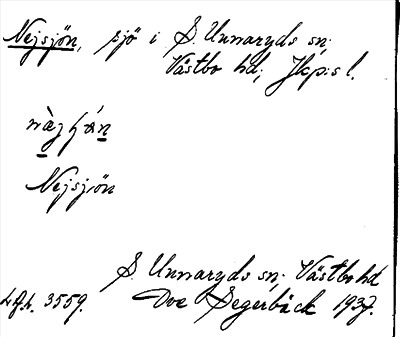 Nejsjön, sjö i S. Unnaryds sn;
Västbo hd; Jkp:s l.
Nejsjön
S. Unnaryds sn; Västbo hd
3559. Ove Segerbäck 1937.